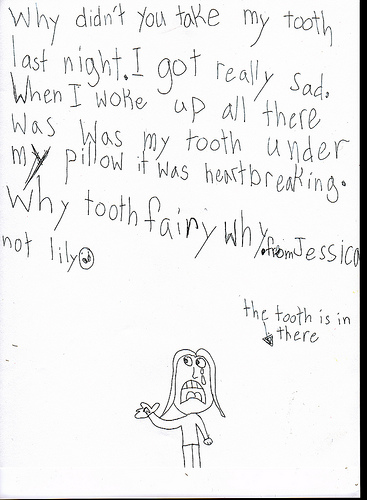 Why didn't you take my tooth
last night. I got really sad.
When I woke up all there
was was my tooth under
my pillow it was heartbreaking.
Why tooth fairy why. from Jessica
not lily
the tooth is in
there